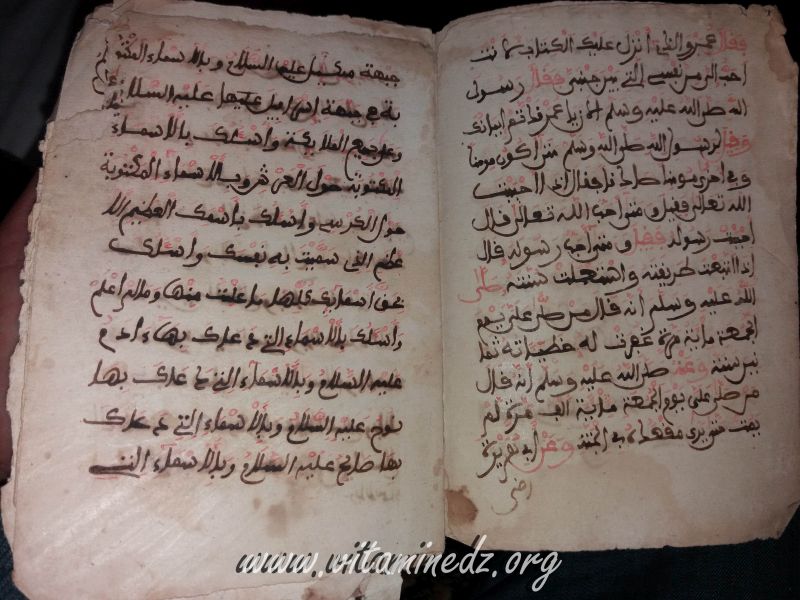 فقال عمر والذي انزل عليك الكتاب لانت
احب الي من نفسي التي بين جنبي فقال رسول
الله صلى الله عليه وسلم الان يا عمر قد تم ايمانك
وقيل لرسول الله صلى الله عليه وسلم متى اكون مومنا
وفي اخرى مومنا صادقا قال اذا احببت
الله تعالى فقيل ومتى احب الله تعالى قال
احببت رسوله فقيل ومتى احب رسوله قال
اذا اتبعت طريقته واستعملت سنته صلى
الله عليه وسلم انه قال من صلى علي يوم
الجمعة ماية مرة غفرت له خطياته ثما
نين سنة وعنه صلى الله عليه وسلم انه قال
من صلى علي يوم الجمعة ماية الف مرة لم
يمت حتى يرى مقعده في الجنة وعن ابي هريرة
رضي
جبهة ميكايل عليه السلام وبالاسماء المكتو
بة في جبهة اسرافيل عليه السلام
وعلى جميع الملايكة واسلك بالاسماء
المكتوبة حول العرش وبالاسماء المكتوبة
حول الكرسي واسلك باسمك العظيم الا
عظم الذي سميت به نفسك واسلك
بحق اسمايك كلها ما علمت منها وما لم اعلم
واسلك بالاسماء التي دعاك بها ءادم
عليه السلام وبالاسماء التي دعاك بها
نوح عليه السلام وبالاسماء التي دعاك
بها صالح عليه السلام وبالاسماء التي
www.vitaminedz.org